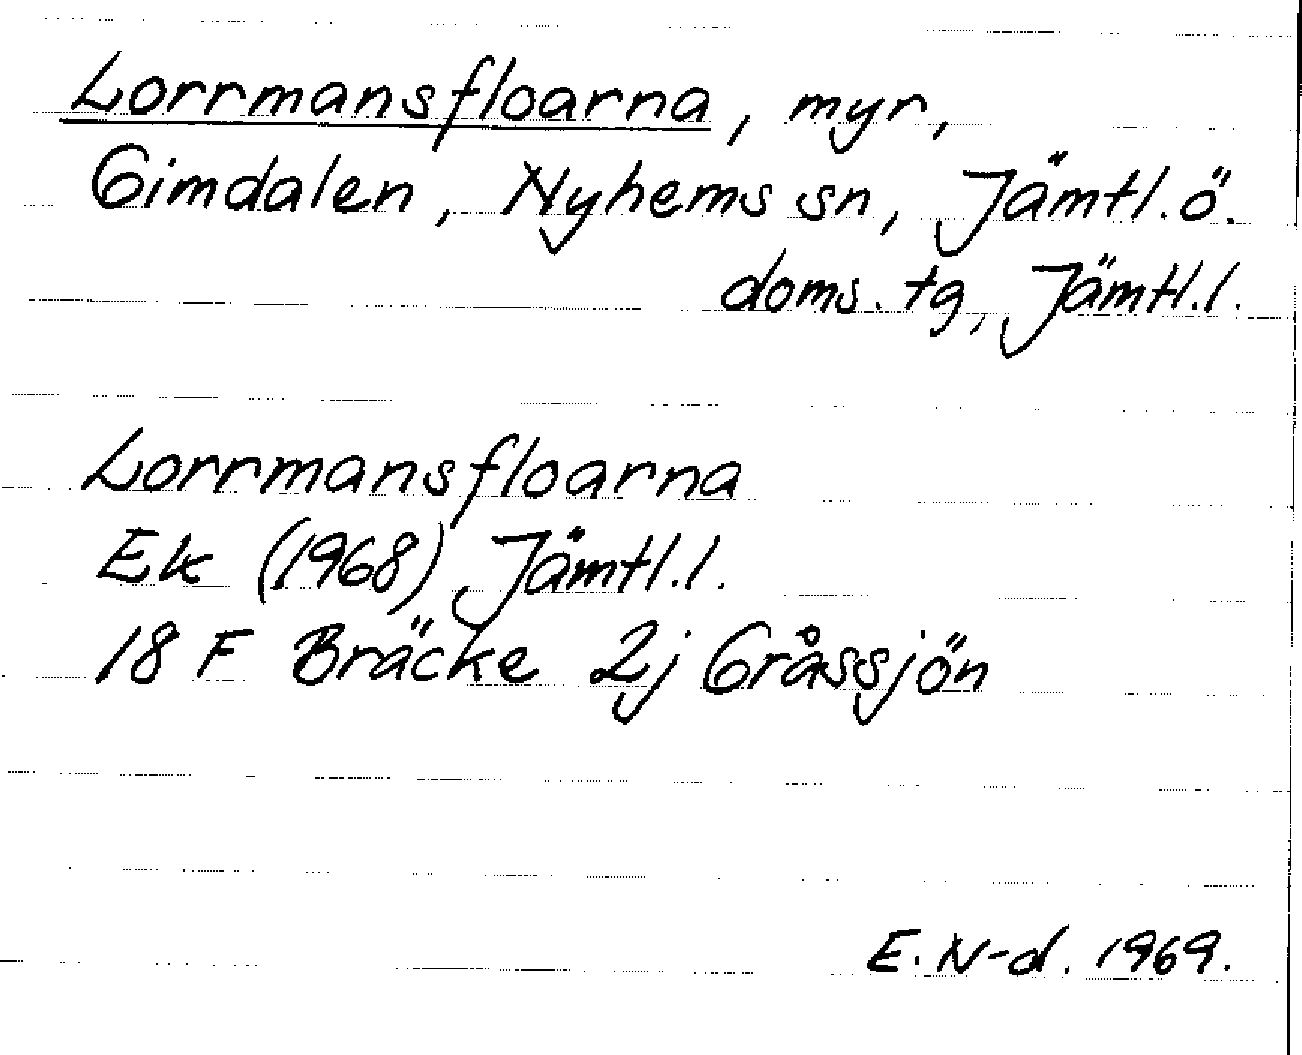 Lorrmansfloarna, myr,
Gimdalen, Nyhems sn, Jämtl.ö.
doms. tg, Jämtl.l.
Lorrmansfloarna
Ek (1968) Jämtl.l.
18 F Bräcke 2j Gråssjön
E. N-d. 1969.